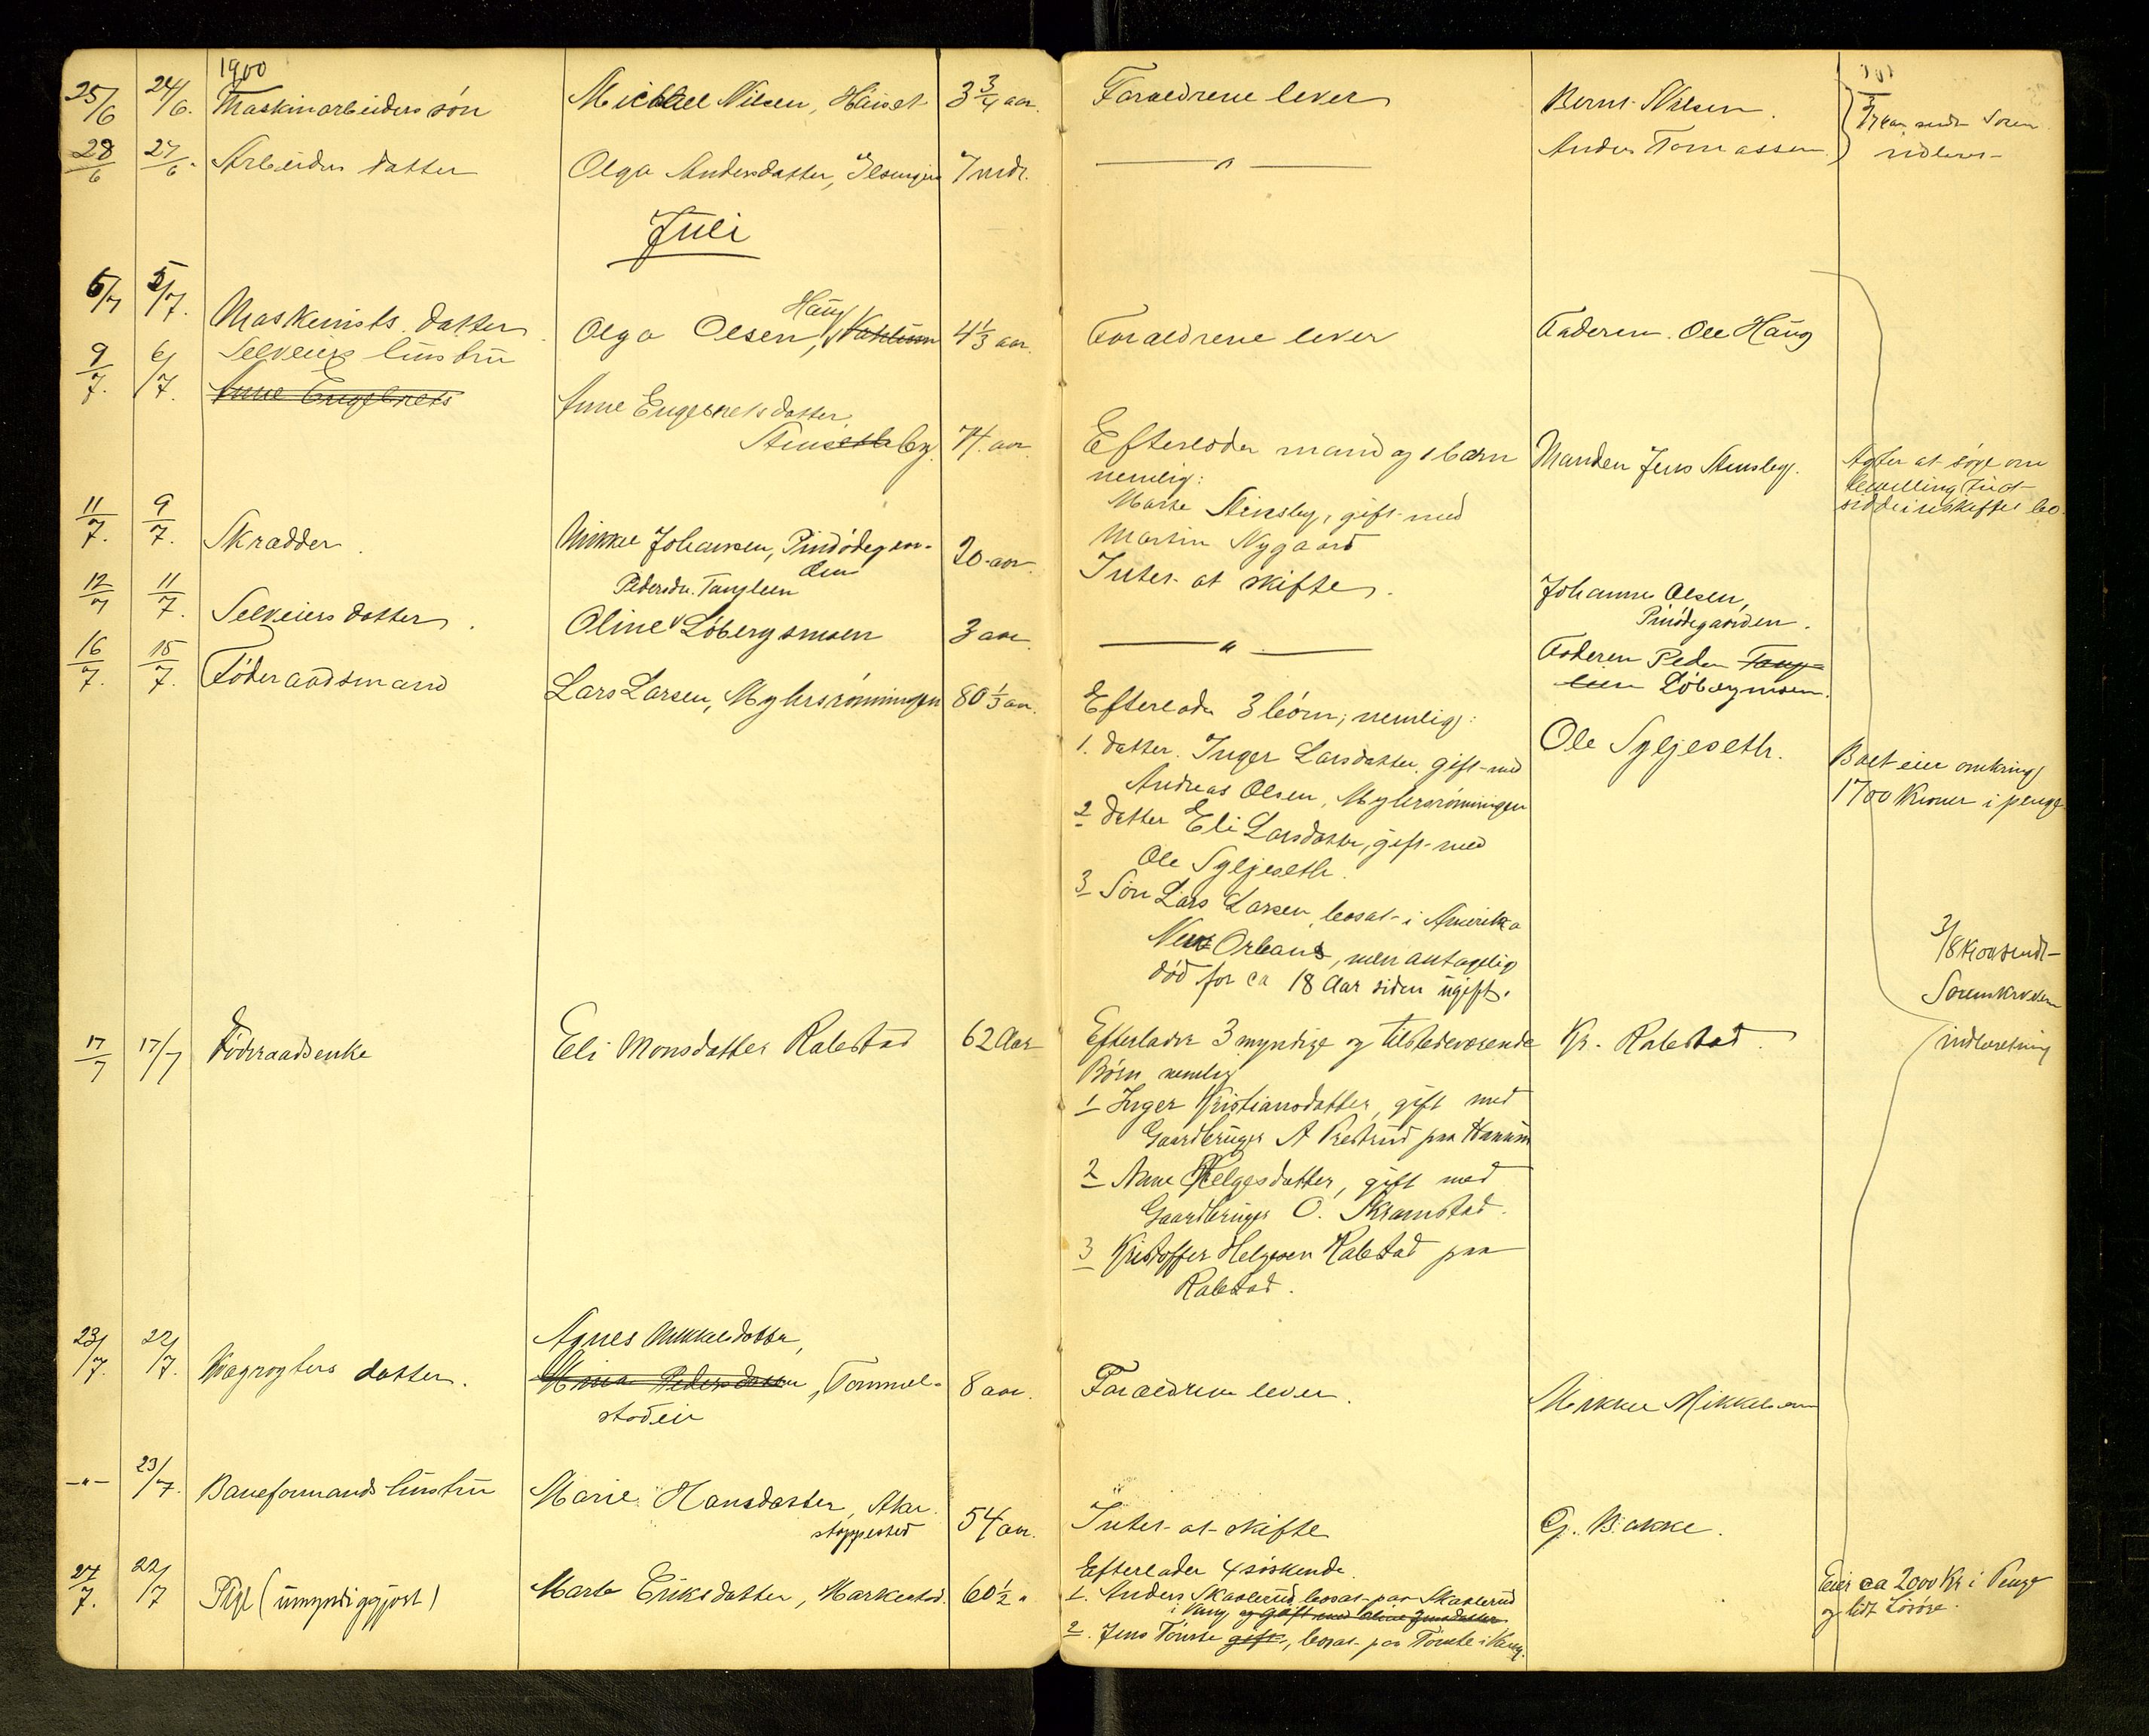 1900
25/6 24/6. Maskinarbeiders søn Michael Nilsen, 3 3/4 aar. Foraeldrene lever Bernt Nilsen.
28/6 27/6. Arbeiders datter Olga Andersdatter, 7 mdr. — " — Anders Tomassen
Juli
6/7 5/7. Maskinists datter Olga Olsen, Haug 4 1/3 aar Foraeldrene lever Faderen Ole Haug
9/7. 6/7. Selveiers hustru
Anne Engebrets
Anne Engebretsdatter,
Stensby. 74 aar
Efterlader mand og 1 barn
nemlig:
Marte Stensby, gift med
Martin Nygaard
Manden Jens Stensby.
Agter at søge om
bevilling til at
sidde i uskiftet bo.
11/7. 9/7. Skrædder. Mikkel Johansen, 20 aar. Intet at skifte. Johannes Olsen,
12/7 11/7. Selveiers datter. Oline Løbergsmoen 3 aar. — " —
Faderen Peder
Løbergsmoen.
16/7. 15/7. Føderaadsmand Lars Larsen, Mylersrønningen 80 1/3 aar.
Efterlader 3 børn; nemlig:
1. datter Inger Larsdatter, gift med
Andreas Olsen, Mylersrønningen
2 datter Eli Larsdatter, gift med
Ole Syljeseth.
3 Søn Lars Larsen, bosat i Amerika
New Orleans, men antagelig
død for ca 18 Aar siden ugift.
Ole Syljeseth.
Boet eier omkring
1700 Kroner i penge
17/7 17/7 Føderaadsenke Eli Monsdatter Rabstad 62 Aar
Efterlader 3 myndige og tilstedeværende
Børn nemlig
1 Inger Kristiansdatter, gift med
Gaardbruger A Prestrud paa
2 Anne Helgesdatter, gift med
Gaardbruger O. Skramstad.
3 Kristoffer Helgesen Rabstad paa
Rabstad.
Kr. Rabstad.
3/8 1900 sendt
Sorenskriveren
indberetning
23/7. 22/7. datter. Agnes Mikkelsdatter,
8 aar. Foraeldrene lever. Mikkel Mikkelsen
— " — 23/7. Baneformands hustru Marie Hansdatter, Aker
stoppested 54 aar. Intet at skifte G. Bakke.
27/7. 22/7 Pige (umyndiggjort) Marte Eriksdatter, Markestad. 60 1/2 "
Efterlader 4 søskende.
1. Anders Skaslerud, bosat paa Skaslerud
i Vang og gift med
2. Jens Tomte gift, bosat paa Tomte i Vang.
Eier ca 2000 Kr i Penge
og lidt Løsøre.